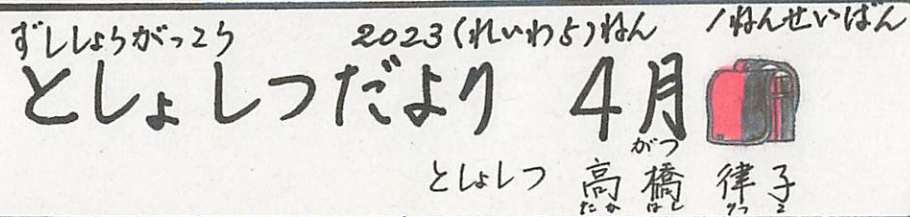 ずししょうがっこう 2023(れいわ5)ねん 1ねんせいばん
としょしつだより 4月
がつ
としょしつ 高橋 律子
たか はし りつ こ